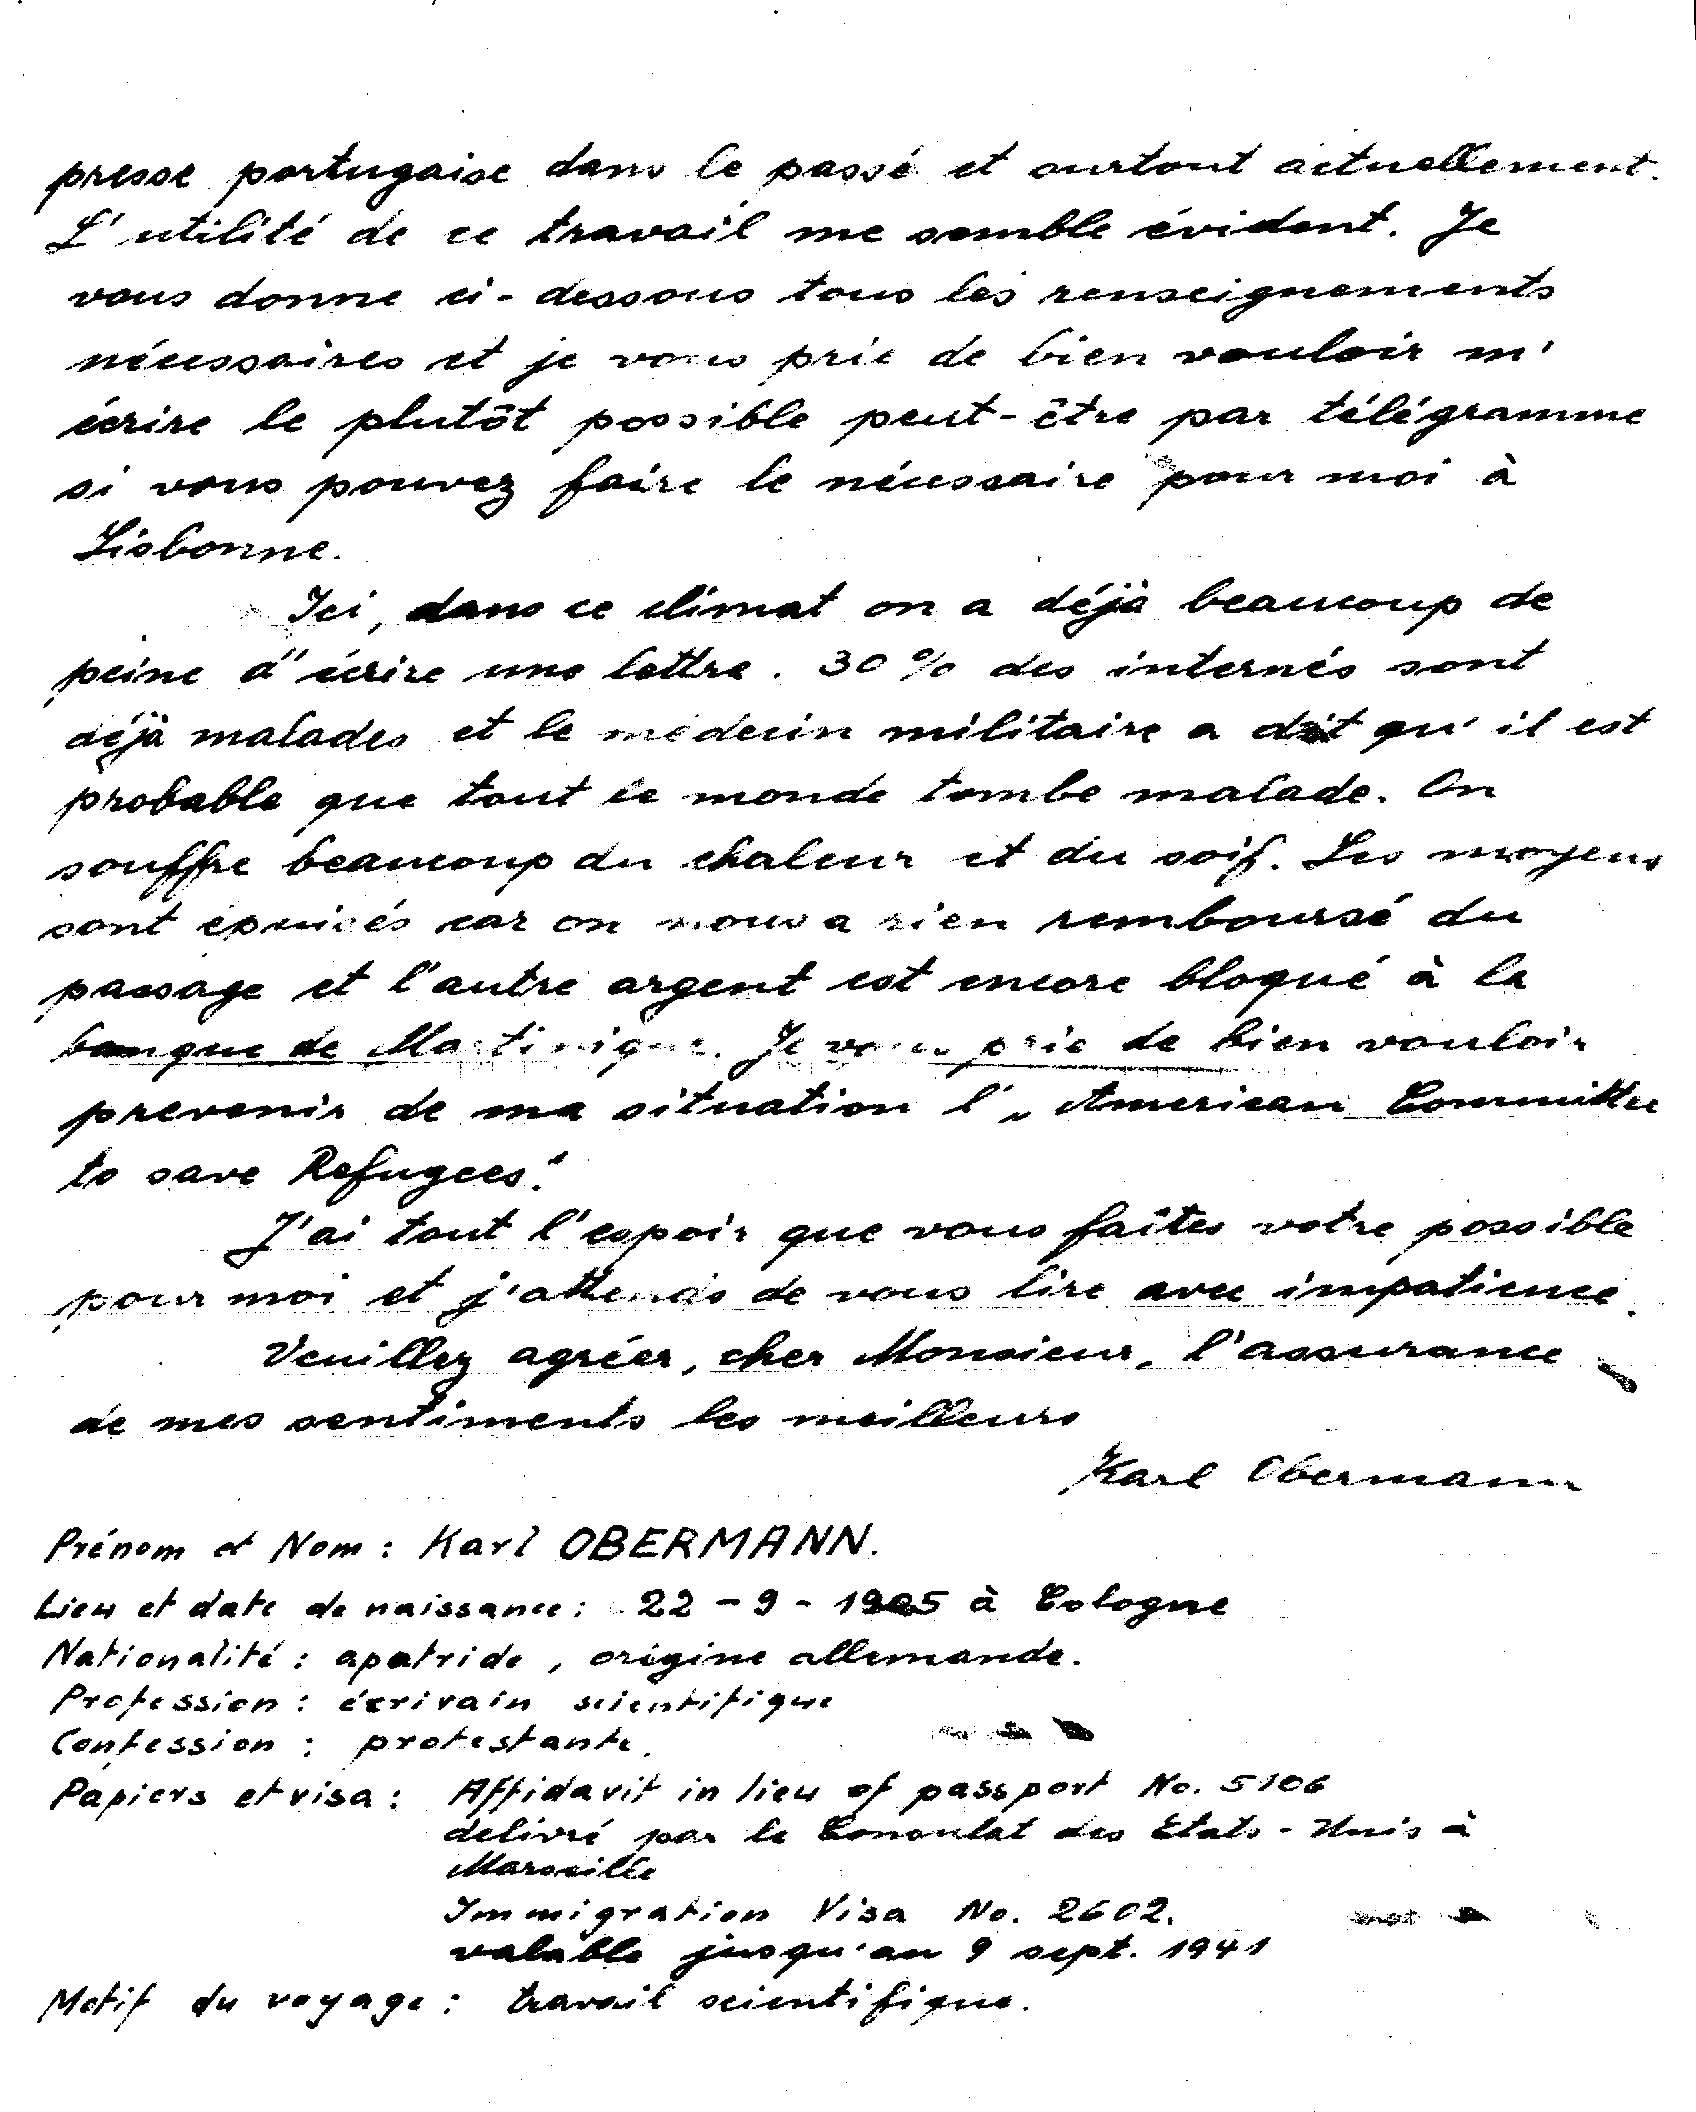 presse portugaise dans le passé et surtout actuellement.
L'utilité de ce travail me semble évident. Je
vous donne ci-dessous tous les renseignements
nécessaires et je vous prie de bien vouloir m'
écrire le plutôt possible peut-être par télégramme
si vous pouvez faire le nécessaire pour moi à
Lisbonne.
Ici, dans ce climat on a déjà beaucoup de
peine d'écrire une lettre. 30% des internés sont
déjà malades et le médecin militaire a dit qu'il est
probable que tout le monde tombe malade. On
souffre beaucoup du chaleur et du soif. Les moyens
sont épuisés car on nous a rien remboursé du
passage et l'autre argent est encore bloqué à la
banque de Martinique. Je vous prie de bien vouloir
prevenir de ma situation l'„American Committee
to save Refugees“.
J'ai tout l'espoir que vous faîtes votre possible
pour moi et j'attends de vous lire avec impatience.
Veuillez agréer, cher Monsieur, l'assurance
de mes sentiments les meilleurs
Karl Obermann
Prénom et Nom : Karl OBERMANN.
Lieu et date de naissance : 22 - 9 - 1905 à Cologne
Nationalité : apatride, origine allemande.
Profession : écrivain scientifique
Confession : protestante.
Papiers et visa : Affidavit in lieu of passport No. 5106
delivré par le Consulat des Etats-Unis à
Marseille
Immigration Visa No. 2602.
valable jusqu'au 9 sept. 1941
Motif du voyage : travail scientifique.